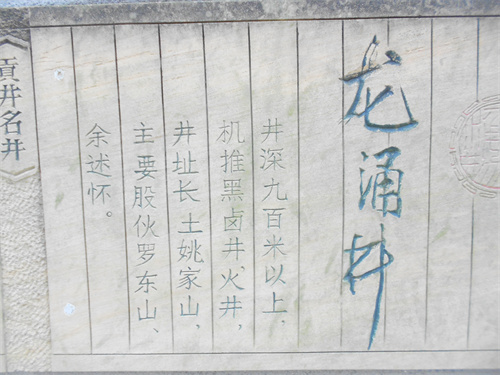 龙涌井
井深九百米以上，
机推黑卤井、火井，
井址长土姚家山，
主要股伙罗东山、
余述怀。
《贡井名井》